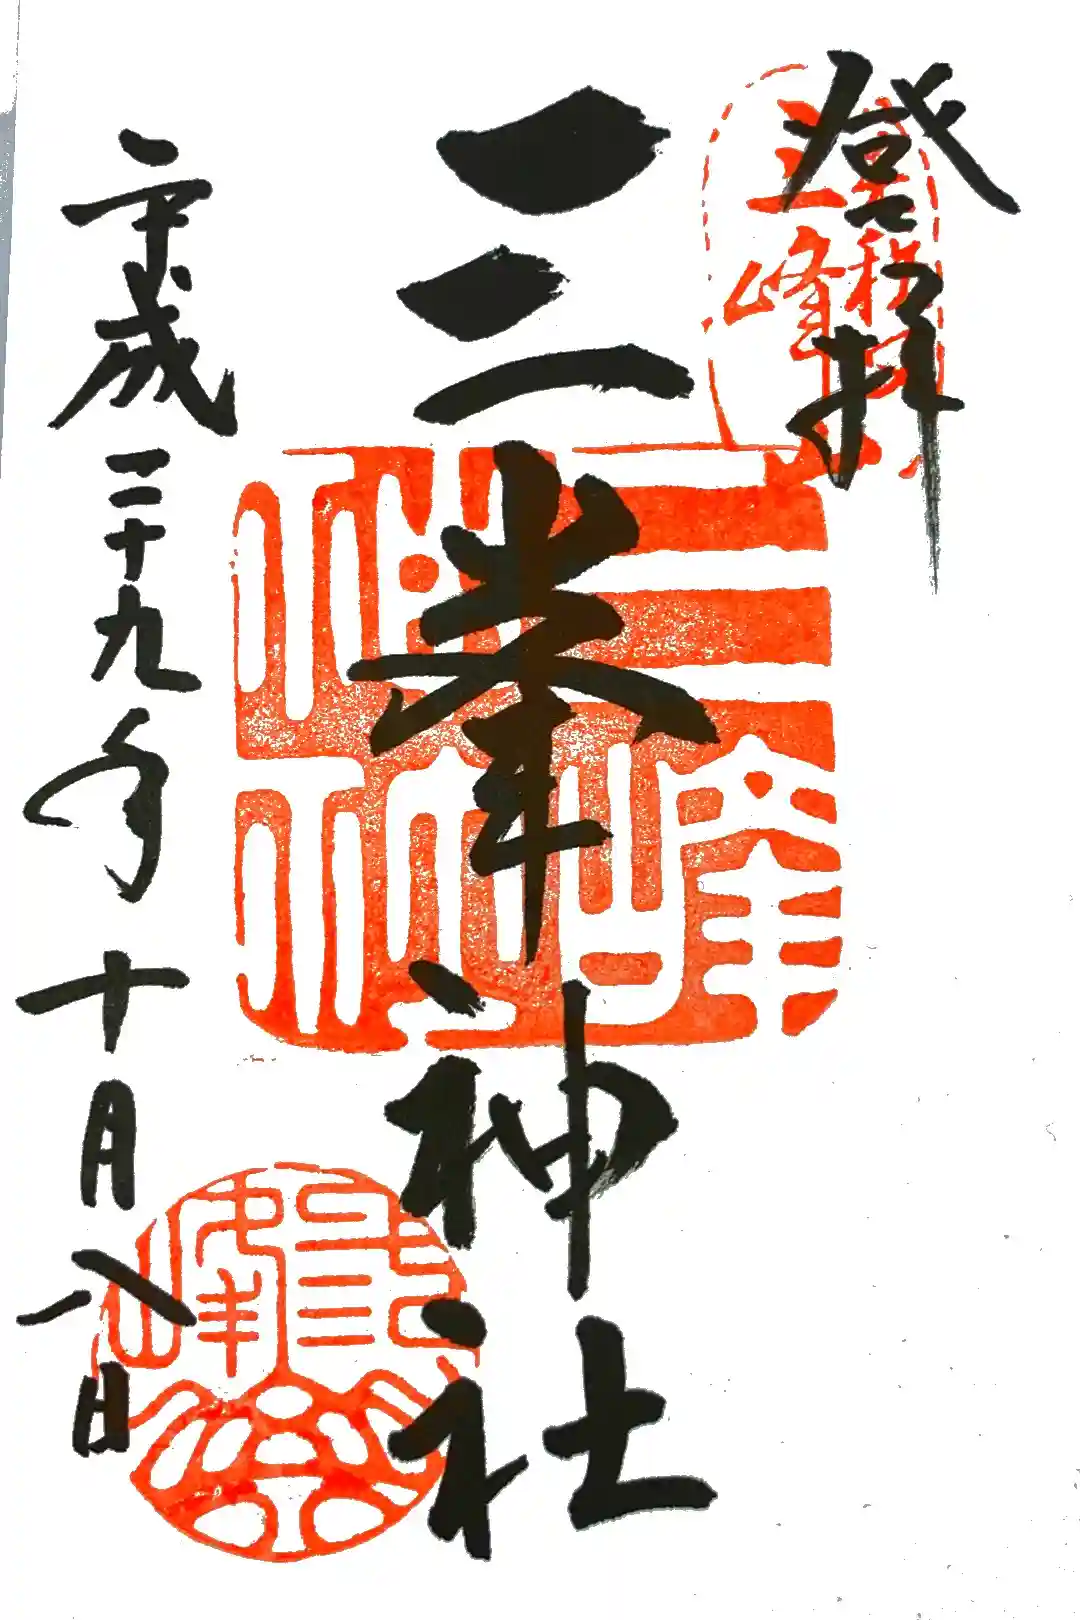 登拝
三峯神社
平成二十九年十月八日
三峰
三峰神社